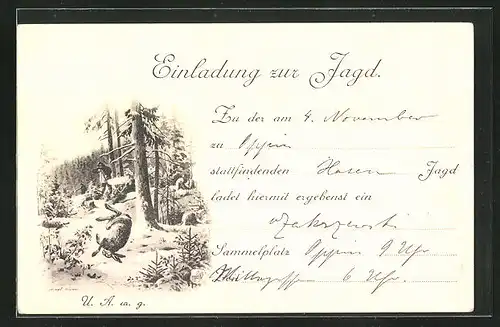 Einladung zur Jagd.
Zu der am 4. November
zu Oppin
stattfindenden Hasen Jagd
ladet hiermit ergebenst ein
Zakrzewski
Sammelplatz Oppin 9 Uhr
6 Uhr.
U. A. w. g.